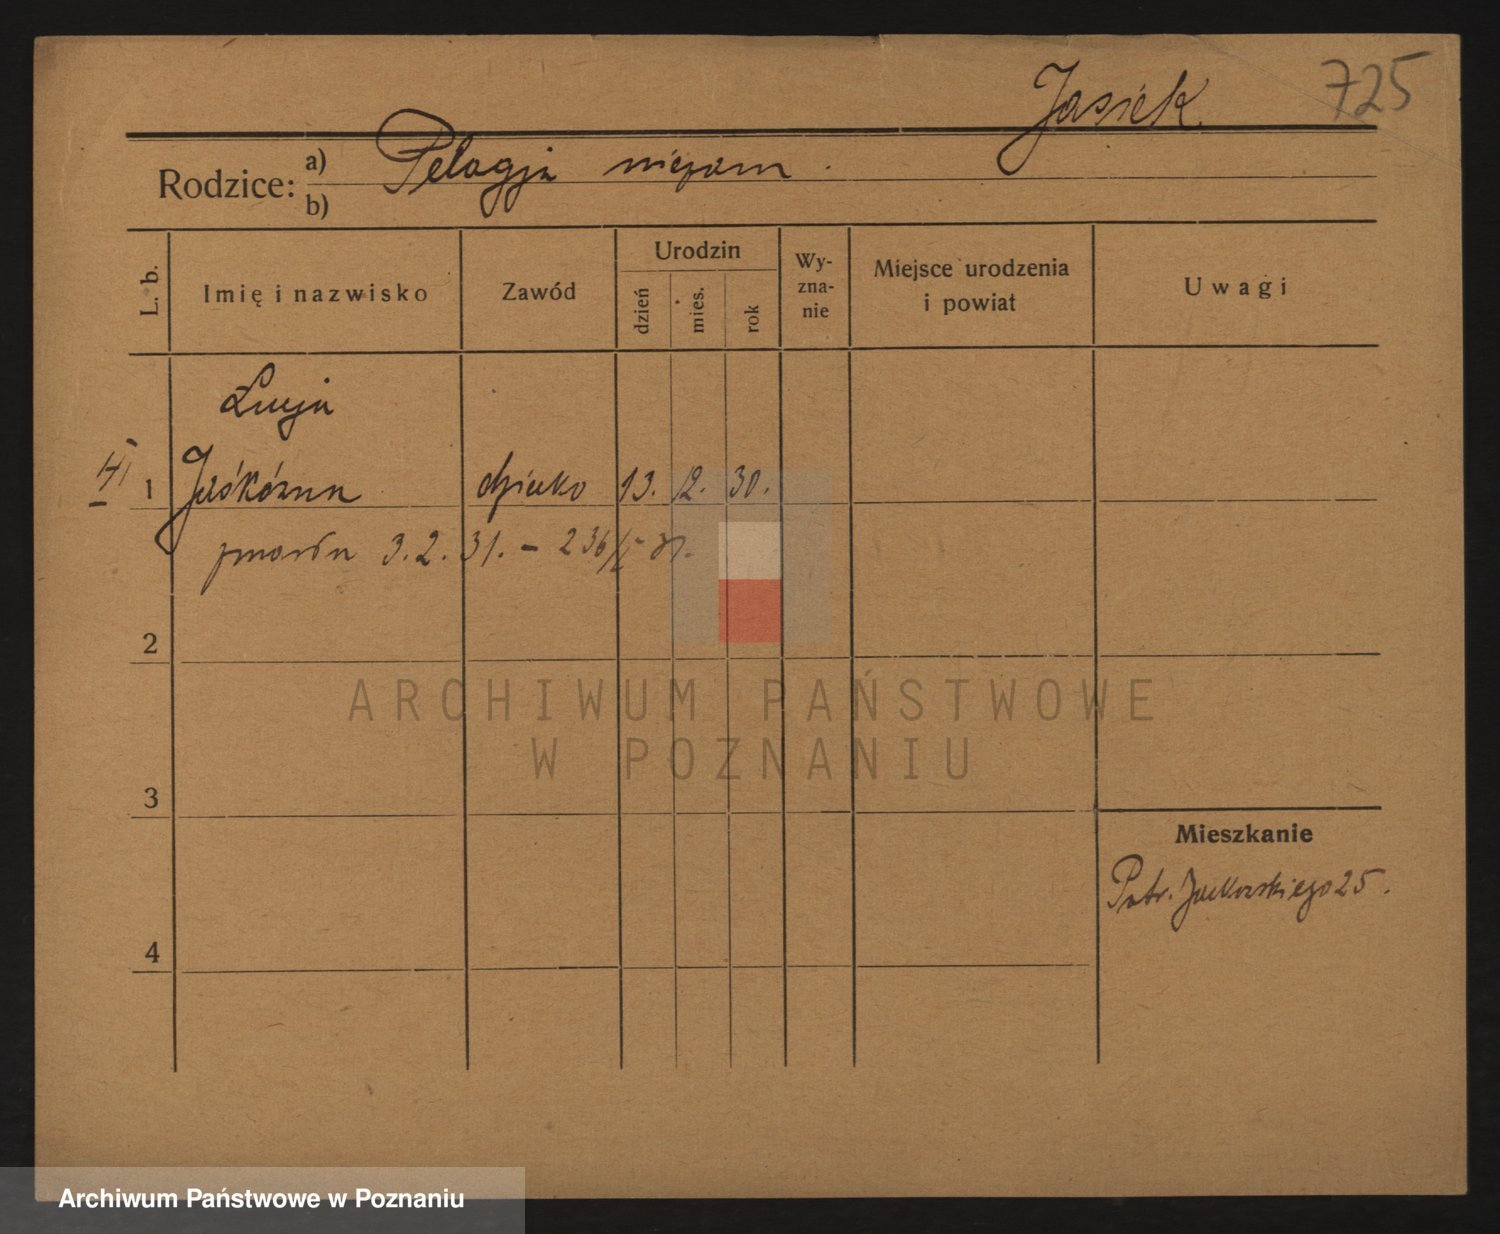 Jasiek
725
Rodzice: a) Pelagja niezam.
b)
L. b.
Imię i nazwisko
Zawód
Urodzin
dzień
mies.
rok
Wy-
zna-
nie
Miejsce urodzenia
i powiat
Uwagi
Łucja
1 Jaśkówna dziecko 13. 12. 30.
zmarła 3. 2. 31. – 236/I
2
3
4
Mieszkanie
Patr. Jackowskiego 25.
ARCHIWUM PAŃSTWOWE
W POZNANIU
Archiwum Państwowe w Poznaniu